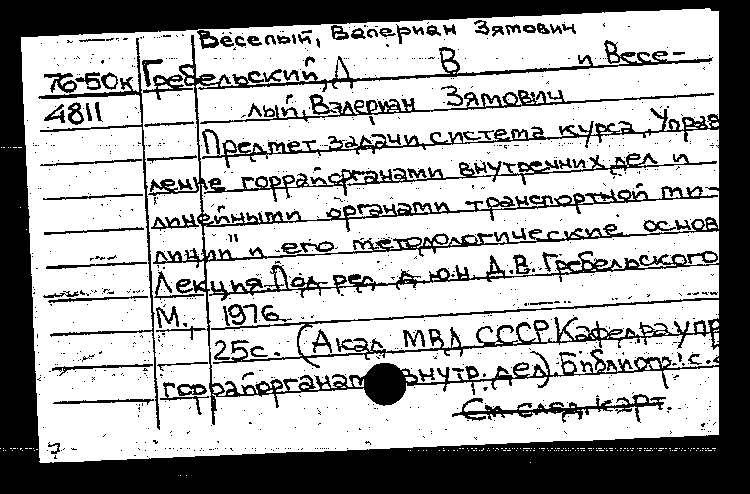 Веселый, Валериан Зятович
76-50к Гребельский, Д В и Весе-
4811 лый, Валериан Зятович
Предмет, задачи, система курса „Управ
ление горрайорганами внутренних дел и
линейными органами транспортной ми-
лиции" и его методологические основ
Лекция. Под ред. д.ю.н. Д.В. Гребельского
М., 1976.
25с. (Акад. МВД СССР. Кафедра упр
горрайорганам внутр. дел). Библиогр.: с.
См. след. карт.
7